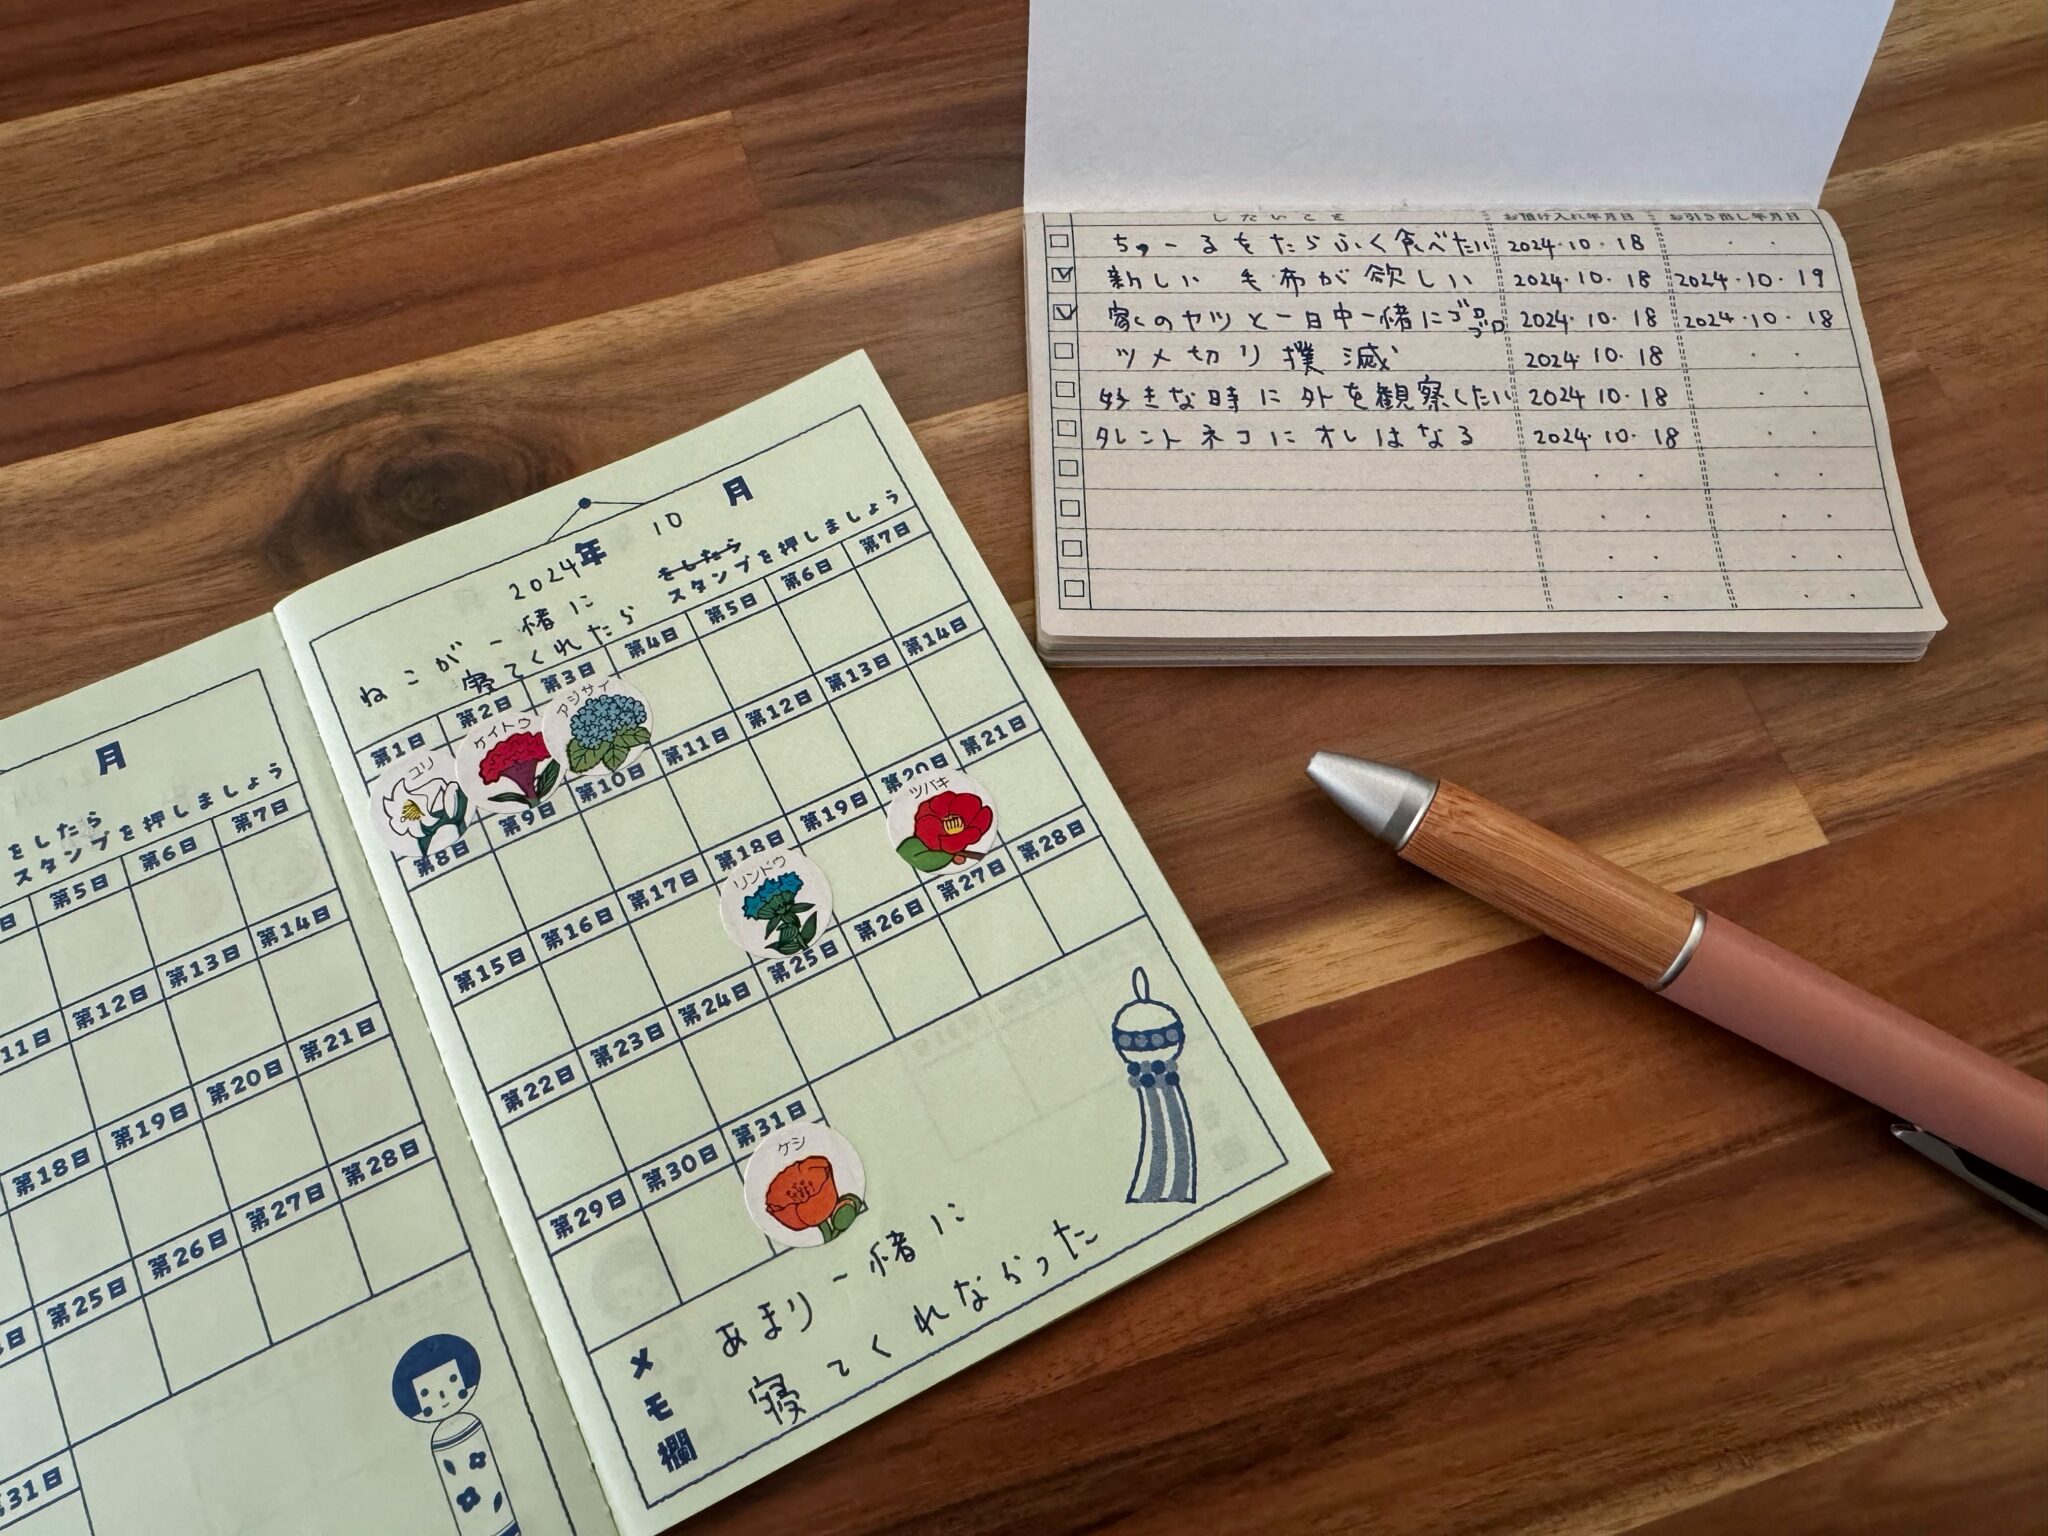 したいこと お預け入れ年月日 お引き出し年月日
ちゅーるをたらふく食べたい 2024.10.18
新しい毛布が欲しい 2024.10.18 2024.10.19
家のヤツと一日中一緒にゴロゴロ 2024.10.18 2024.10.18
ツメ切り撲滅 2024.10.18
好きな時に外を観察したい 2024.10.18
タレントネコにオレはなる 2024.10.18
月
をしたら
スタンプを押しましょう
第5日 第6日 第7日
第12日 第13日 第14日
第18日 第19日 第20日 第21日
第25日 第26日 第27日 第28日
第31日
2024年 10月
ねこが一緒に
寝てくれたら
をしたら
スタンプを押しましょう
第1日 第2日 第3日 第4日 第5日 第6日 第7日
ユリ ケイトウ アジサイ
第8日 第9日 第10日 第11日 第12日 第13日 第14日
第15日 第16日 第17日 第18日 第19日 第20日 第21日
リンドウ ツバキ
第22日 第23日 第24日 第25日 第26日 第27日 第28日
第29日 第30日 第31日
ケシ
メモ欄
あまり一緒に
寝てくれなかった